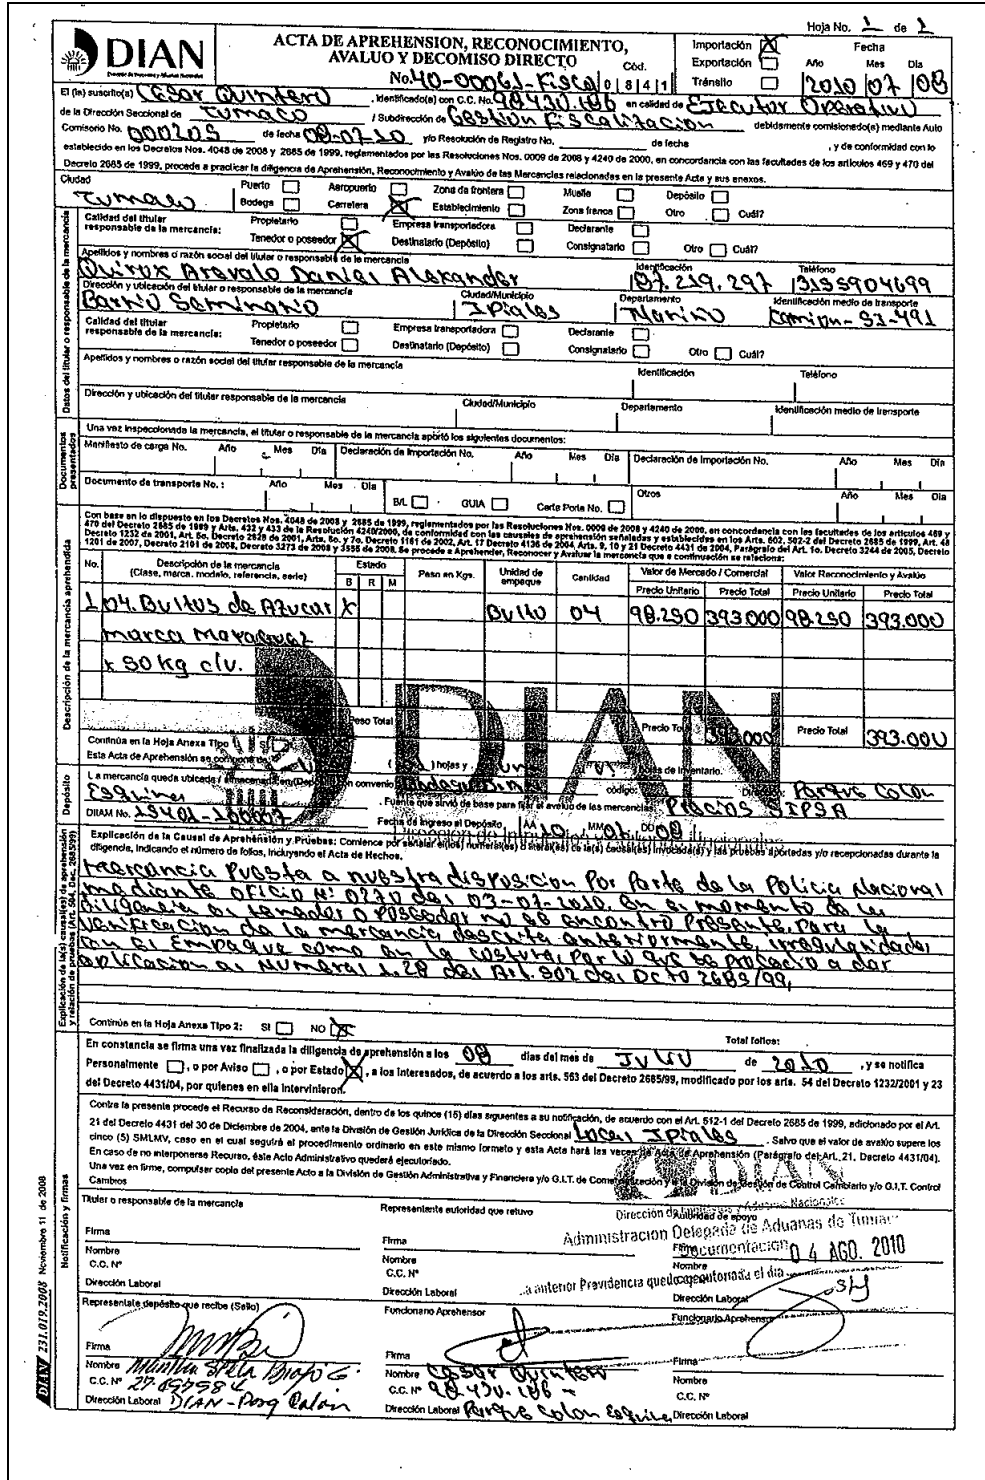 Hoja No. 1 de 1
DIAN
Dirección de Impuestos y Aduanas Nacionales
ACTA DE APREHENSION, RECONOCIMIENTO,
AVALUO Y DECOMISO DIRECTO Cód.
No. 40-00061-Fisca 0841
Importación X
Exportación
Tránsito
Fecha
Año Mes Dia
2010 07 08
El (la) suscrito(a) Cesar Quintero, identificado(a) con C.C. No. 98.430.186 en calidad de Ejecutor Operativo
de la Dirección Seccional de Tumaco / Subdirección de Gestión Fiscalización debidamente comisionado(a) mediante Auto
Comisorio No. 000205 de fecha 08-07-10 y/o Resolución de Registro No. de fecha , y de conformidad con lo
establecido en los Decretos Nos. 4048 de 2008 y 2685 de 1999, reglamentados por las Resoluciones Nos. 0009 de 2008 y 4240 de 2000, en concordancia con las facultades de los artículos 469 y 470 del
Decreto 2685 de 1999, procede a practicar la diligencia de Aprehensión, Reconocimiento y Avalúo de las Mercancías relacionadas en la presente Acta y sus anexos.
Ciudad
Tumaco
Puerto Aeropuerto Zona de frontera Muelle Depósito
Bodega Carretera X Establecimiento Zona franca Otro Cuál?
Datos del titular o responsable de la mercancía
Calidad del titular responsable de la mercancía:
Propietario Empresa transportadora Declarante
Tenedor o poseedor X Destinatario (Depósito) Consignatario Otro Cuál?
Apellidos y nombres o razón social del titular o responsable de la mercancía Identificación Teléfono
Quirox Arevalo Daniel Alexander 87.219.297 3155904699
Dirección y ubicación del titular o responsable de la mercancía Ciudad/Municipio Departamento Identificación medio de transporte
Barrio Seminario Ipiales Nariño Camion-SJ-491
Calidad del titular responsable de la mercancía:
Propietario Empresa transportadora Declarante
Tenedor o poseedor Destinatario (Depósito) Consignatario Otro Cuál?
Apellidos y nombres o razón social del titular responsable de la mercancía Identificación Teléfono
Dirección y ubicación del titular responsable de la mercancía Ciudad/Municipio Departamento Identificación medio de transporte
Documentos presentados
Una vez inspeccionada la mercancía, el titular o responsable de la mercancía aportó los siguientes documentos:
Manifiesto de carga No. Año Mes Día Declaración de Importación No. Año Mes Día Declaración de Importación No. Año Mes Día
Documento de transporte No. : Año Mes Dia B/L GUIA Carta Porte No. Otros Año Mes Día
Descripción de la mercancía aprehendida
Con base en lo dispuesto en los Decretos Nos. 4048 de 2008 y 2685 de 1999, reglamentados por las Resoluciones Nos. 0009 de 2008 y 4240 de 2000, en concordancia con las facultades de los artículos 469 y
470 del Decreto 2685 de 1999 y Arts. 432 y 433 de la Resolución 4240/2000, de conformidad con las causales de aprehensión señaladas y establecidas en los Arts. 502, 502-2 del Decreto 2685 de 1999, Art. 48
Decreto 1232 de 2001, Art. 5o. Decreto 2628 de 2001, Arts. 6o. y 7o. Decreto 1161 de 2002, Art. 17 Decreto 4136 de 2004, Arts. 9, 10 y 21 Decreto 4431 de 2004, Parágrafo del Art. 1o. Decreto 3244 de 2005, Decreto
1201 de 2007, Decreto 2101 de 2008, Decreto 3273 de 2008 y 3555 de 2008. Se procede a Aprehender, Reconocer y Avaluar la mercancía que a continuación se relaciona:
No. Descripción de la mercancía (Clase, marca, modelo, referencia, serie) Estado B R M Peso en Kgs. Unidad de empaque Cantidad Valor de Mercado / Comercial Valor Reconocimiento y Avalúo
Precio Unitario Precio Total Precio Unitario Precio Total
1 04. Bultos de Azucar X Bulto 04 98.250 393.000 98.250 393.000
marca Mayaguez
x 50 kg c/u.
DIAN
Peso Total Precio Total 393.000 Precio Total 393.000
Continúa en la Hoja Anexa Tipo 1 SI
Esta Acta de Aprehensión se compone de ( ) hojas y un de Inventario.
Depósito
La mercancía queda ubicada / almacenada en (Depósito) en convenio código: Parque Colon
Esquina . Fuente que sirvió de base para fijar el avalúo de las mercancías: Precios SIPSA
DIIAM No. Fecha de ingreso al Depósito AA 10 MM DD 08
Explicación de la(s) causal(es) de aprehensión y relación de pruebas (Art. 504, Dec. 2685/99)
Explicación de la Causal de Aprehensión y Pruebas: Comience por señalar el(los) numeral(es) o literal(es) de la(s) causal(es) invocada(s) y las pruebas aportadas y/o recepcionadas durante la
diligencia, indicando el número de folios, incluyendo el Acta de Hechos.
Mercancia Puesta a nuestra disposicion Por Parte de la Policia Nacional
mediante oficio N° 0270 del 03-07-2010. en el momento de la
diligencia el tenedor o Poseedor no se encontro Presente, Para la
Verificacion de la mercancia descrita anteriormente, irregularidades
en el Empaque como en la costura, Por lo que se procedio a dar
aplicacion al Numeral 1.28 del Art. 502 del Dcto 2685/99,
Continúa en la Hoja Anexa Tipo 2: SI NO X Total folios:
Notificación y firmas
En constancia se firma una vez finalizada la diligencia de aprehensión a los 08 días del mes de Julio de 2010 , y se notifica
Personalmente , o por Aviso , o por Estado X , a los interesados, de acuerdo a los arts. 563 del Decreto 2685/99, modificado por los arts. 54 del Decreto 1232/2001 y 23
del Decreto 4431/04, por quienes en ella intervinieron.
Contra la presente procede el Recurso de Reconsideración, dentro de los quince (15) días siguientes a su notificación, de acuerdo con el Art. 512-1 del Decreto 2685 de 1999, adicionado por el Art.
21 del Decreto 4431 del 30 de Diciembre de 2004, ante la División de Gestión Jurídica de la Dirección Seccional Local Ipiales . Salvo que el valor de avalúo supere los
cinco (5) SMLMV, caso en el cual seguirá el procedimiento ordinario en este mismo formato y esta Acta hará las veces de Acta de Aprehensión (Parágrafo del Art. 21, Decreto 4431/04).
En caso de no interponerse Recurso, éste Acto Administrativo quedará ejecutoriado.
Una vez en firme, compulsar copia del presente Acto a la División de Gestión Administrativa y Financiera y/o G.I.T. de Comercialización y a la División de Gestión de Control Cambiario y/o G.I.T. Control
Cambios
DIAN
Dirección de Impuestos y Aduanas Nacionales
Administracion Delegada de Aduanas de Tumaco
Documentación 04 AGO. 2010
La anterior Providencia quedo ejecutoriada el dia
Titular o responsable de la mercancía Representante autoridad que retuvo Autoridad de apoyo
Firma Firma Firma
Nombre Nombre Nombre
C.C. N° C.C. N°
Dirección Laboral Dirección Laboral Dirección Laboral
Representate depósito que recibe (Sello) Funcionario Aprehensor Funcionario Aprehensor
Firma Firma Firma
Nombre Nombre Cesar Quintero Nombre
C.C. N° C.C. N° 98.430.186 C.C. N°
Dirección Laboral DIAN - Parq Colón Dirección Laboral Parque Colon Esquina Dirección Laboral
DIAN 231.019.2008 Noviembre 11 de 2008